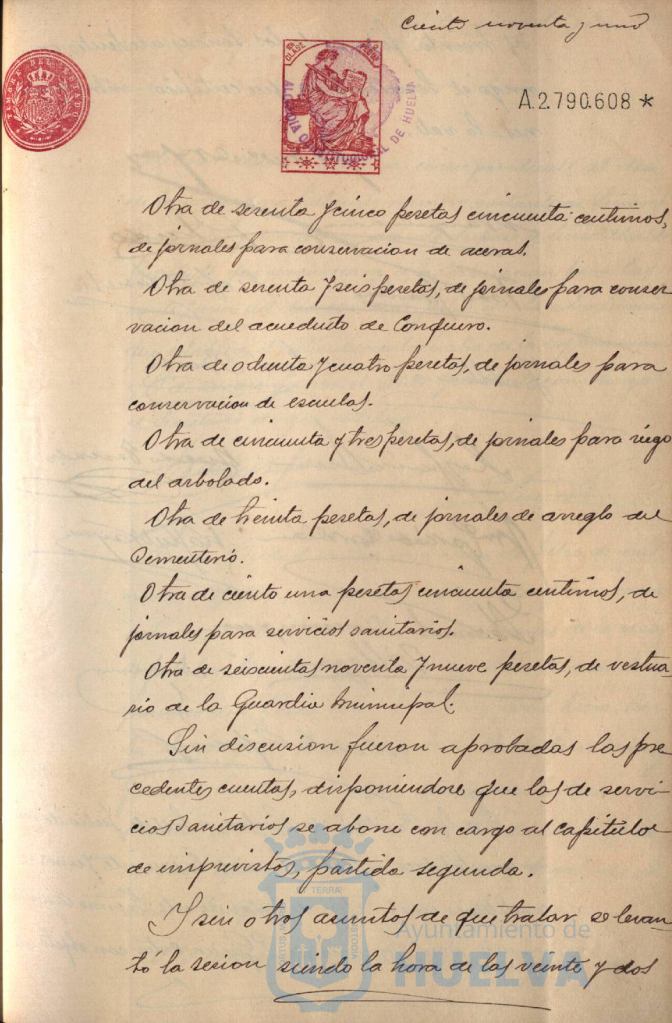 Ciento noventa y uno
TIMBRE DEL ESTADO
CLASE
A.2.790.608 *
ALCALDIA CONSTITUCIONAL DE HUELVA
Otra de sesenta y cinco pesetas cincuenta centimos,
de jornales para conservacion de aceras.
Otra de sesenta y seis pesetas, de jornales para conser
vacion del acueducto de Conquero.
Otra de ochenta y cuatro pesetas, de jornales para
conservacion de escuelas.
Otra de cincuenta y tres pesetas, de jornales para riego
del arbolado.
Otra de treinta pesetas, de jornales de arreglo del
Cementerio.
Otra de ciento una pesetas cincuenta centimos, de
jornales para servicios sanitarios.
Otra de seiscientas noventa y nueve pesetas, de vestua-
rio de la Guardia Municipal.
Sin discusion fueron aprobadas las pre
cedentes cuentas, disponiendose que las de servi-
cios Sanitarios se abone con cargo al capitulo
de imprevistos, partida segunda.
Y sin otros asuntos de que tratar se levan-
tó la sesion siendo la hora de las veinte y dos
TERRA
Ayuntamiento de
HUELVA